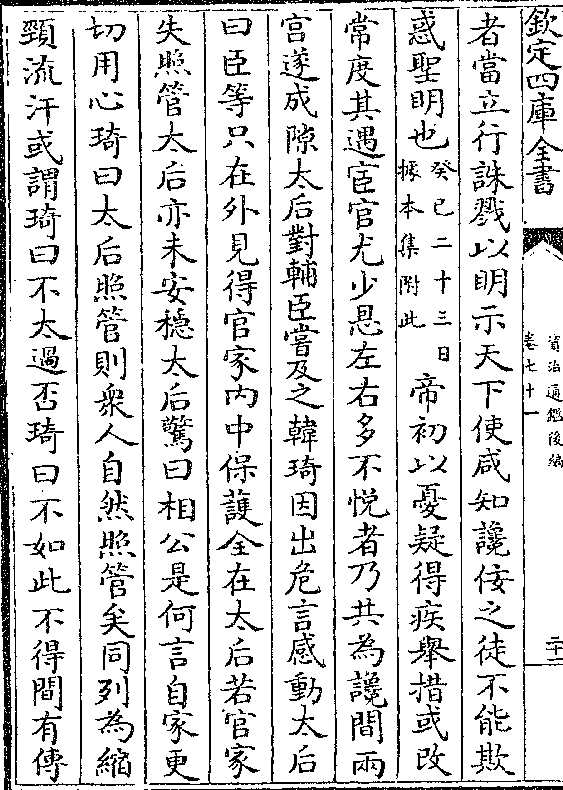 欽定四庫全書
資治通鑑後編
卷七十一
二十二
者當立行誅戮以明示天下使咸知讒佞之徒不能欺
惑聖明也癸巳二十三日據本集附此帝初以憂疑得疾舉措或改
常度其遇宦官尤少恩左右多不悅者乃共為讒間兩
宫遂成隙太后對輔臣嘗及之韓琦因出危言感動太后
曰臣等只在外見得官家内中保䕶全在太后若官家
失照管太后亦未安穩太后驚曰相公是何言自家更
切用心琦曰太后照管則衆人自然照管矣同列為縮
頸流汗或謂琦曰不太過否琦曰不如此不得間有傳